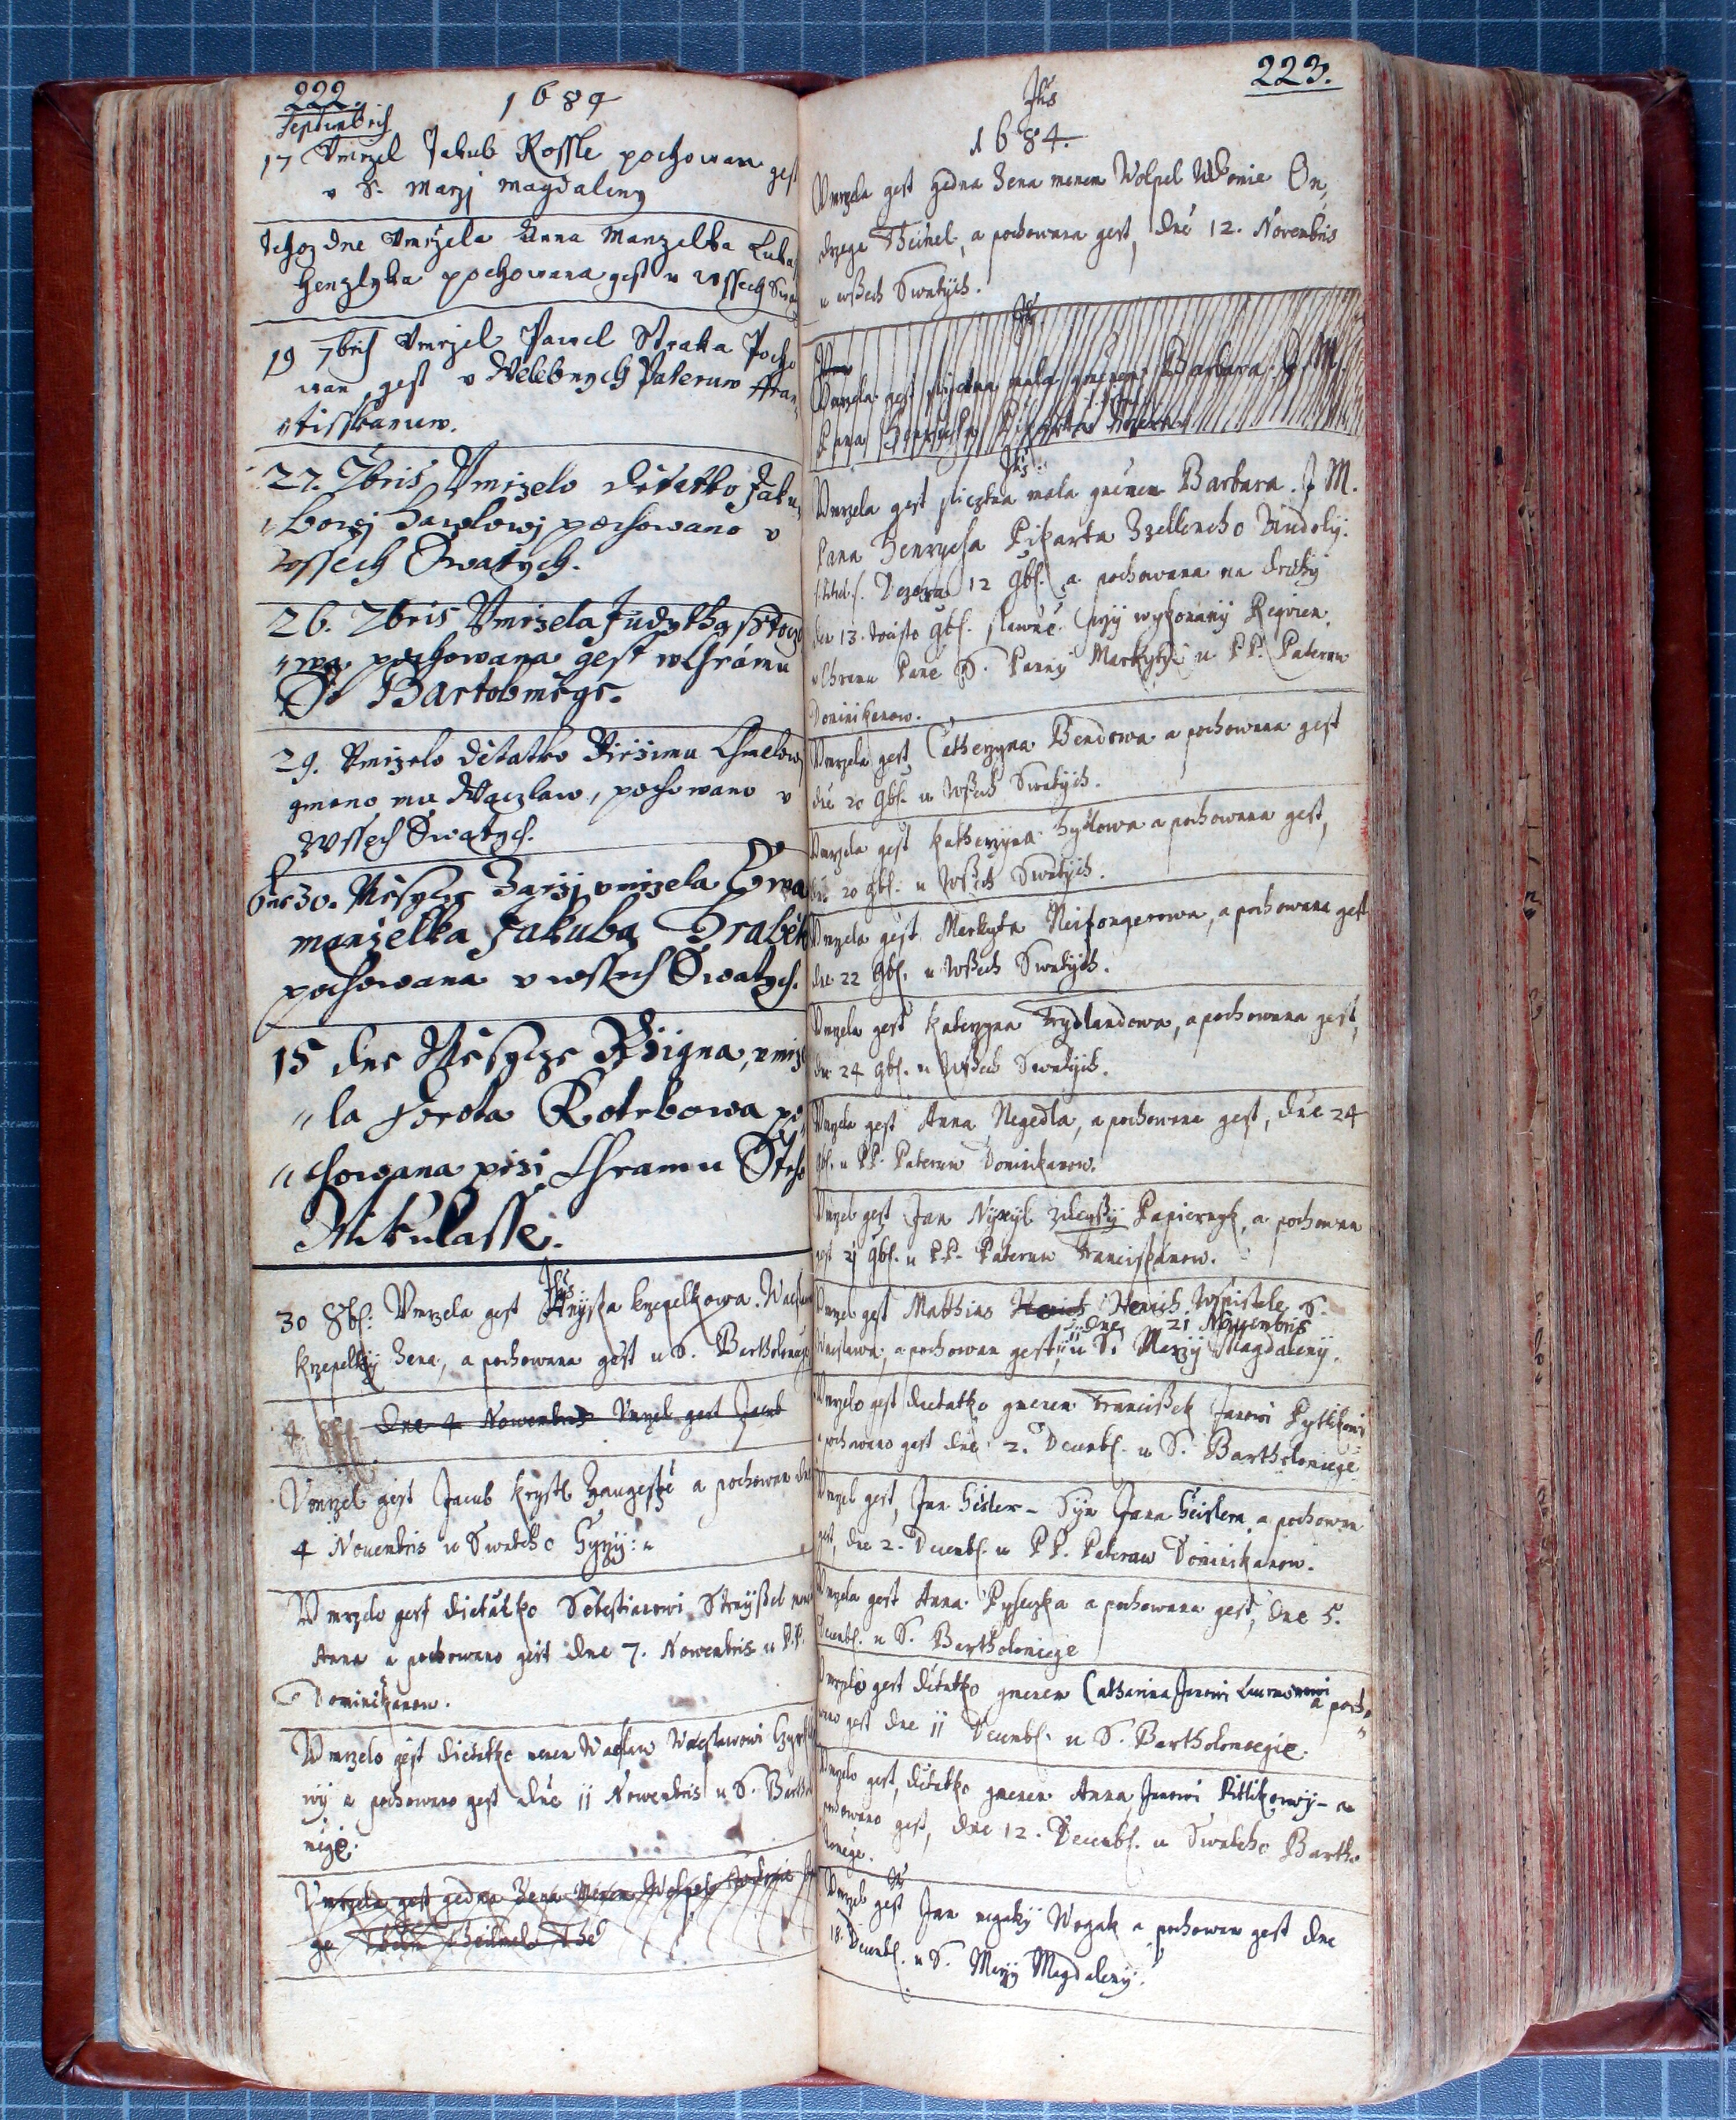 222. 1684
Septembris
17 Vmrzel Jakub Rossle pochowan gest
v S. Marzj Magdaleny
Tehoz dne Vmrzela Anna Manzelka Luka
pochowana gest v Wssech Swa
19 7bris Vmrzel Pawel Straka Pocho
wan gest v Welebnych Pateruw ffran
tisskanuw.
27. 7bris Vmrzelo ditatko Jaku
bowj Hawlowj pochowano v
wssech Swatych.
26. 7bris Vmrzela Judytha
wa pochowana gest w Chrámu
So Bartolomiege.
29. Vmrzelo ditatko Girzimu Chmelow
gmeno mu Waczlaw, pochowano v
Wssech Swatych.
Dne 30. Miesycze Zarzj vmrzela Ewa
manzelka Jakuba Hrabie
pochowana v wssech Swatych.
15 dne Miesycze Rzigna, vmrze
la Dorota Kotrbowa po
chowana przi Chramu Steho
Mikulasse.
Jhs
30 8bs: Vmrzela gest krzepelkowa. Wacslawa
krzepelky zena, a pochowana gest u S. Bartholomieg
dne 4 Nowembris Vmrzel gest Jacub
Vmrzel gest Jacub Krystl a pochowan dne
4 Nouembris u Swateho Gyrzy:
Vmrzelo gest dietatko Sebestianowi
Anna a pochowano gest dne 7. Nowembris u P.P.
Dominikanow.
Vmrzelo gest dietatko menem Waclaw Waclawowi
wy a pochowano gest dne 11 Nowembris u S. Bartho
miege.
Vmrzela gest gedna zena menem Wolpel
ge
223.
Jhs
1684.
Vmrzela gest gedna zena menem Wolpel On,
drzege Theinel, a pochowana gest, dne 12. Novembris
u wssech Swatych.
Vmrzela gest sliczna mala gmenem Barbara. J M.
Pana
Jhs
Vmrzela gest sliczna mala gmenem Barbara. J M.
Pana Henrycha Pikarta
Dczera 12 9bs. a pochowana na druhy
den 13. tohoto 9bs. slawne wykonany Requiem,
w Chramu Pane S. Panny Markyty u P.P. Pateruw
Dominikanow.
Vmrzela gest Catherzyna Bendowa a pochowana gest
dne 20 9bs. u Wssech Swatych.
Vmrzela gest Katherzyna a pochowana gest,
dne 20 9bs. u Wssech Swatych.
Vmrzela gest Markyta a pochowana gest
dne 22 9bs. u Wssech Swatych.
Vmrzela gest Katerzyna Frydlandowa, a pochowana gest,
dne 24 9bs. u Wssech Swatych.
Vmrzela gest Anna Negedla, a pochowana gest, dne 24
9bs. u P.P. Pateruw Dominikanow.
Vmrzel gest Jan zdegssy Papiernyk, a pochowan
gest 21 9bs. u P.P. Pateruw Franciskánow.
Vmrzel gest Matthias Henrich S.
dne 21 Nouembris
Wacslawa, a pochowan gest u S. Marzy Magdaleny.
Vmrzelo gest dietatko gmenem Francissek Janowi Pytlikowi
pochowano gest dne 2. Decembs. u S. Bartholomiege
Vmrzel gest, Jan Heisler - Syn Jana Heislera a pochowan
gest, dne 2. Decembs. u P.P. Pateruw Dominikanow.
Vmrzela gest Anna a pochowana gest, dne 5.
Decembs. u S. Bartholomiege
Vmrzelo gest dietatko gmenem Catharina Janowi a pocho
wano gest dne 11 Decembs. u S. Bartholomiegie.
Vmrzelo gest, dietatko gmenem Anna Janowi Pittlikowy - a
pochowano gest, dne 12. Decembs. u Swateho Bartho
lomiege.
Vmrzel gest Jan negaky Wogak a pochowan gest dne
18. Decembs. u S. Marzy Magdaleny.